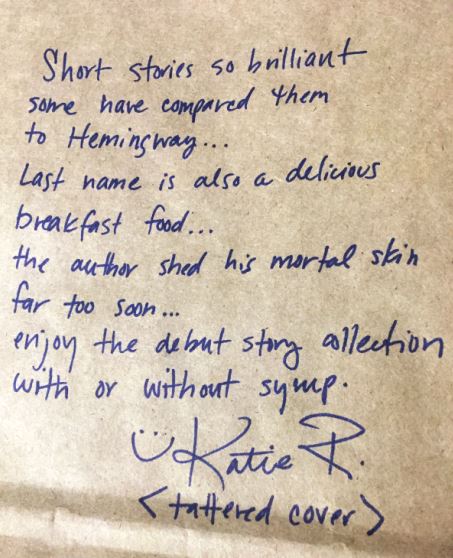 Short stories so brilliant
some have compared them
to Hemingway...
Last name is also a delicious
breakfast food...
the author shed his mortal skin
far too soon...
enjoy the debut story collection
with or without syrup.
Katie R.
<tattered cover>